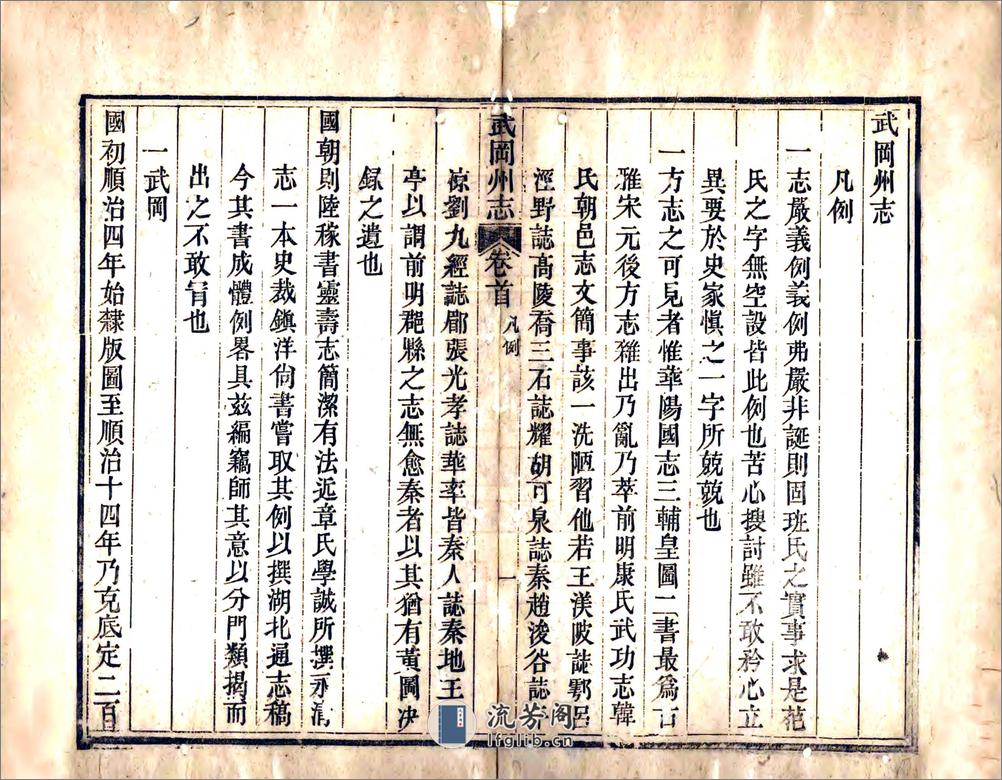 武岡州志
凡例
一志嚴義例義例弗嚴非誕則固班氏之實事求是范
氏之字無空設皆此例也苦心搜討雖不敢矜心立
異要於史家慎之一字所兢兢也
一方志之可見者惟華陽國志三輔皇圖二書最爲古
雅宋元後方志雜出乃亂乃萃前明康氏武功志韓
氏朝邑志文簡事該一洗陋習他若王渼陂誌鄠呂
涇野誌高陵喬三石誌耀胡可泉誌秦趙浚谷誌
武岡州志
卷首
凡例
一
涼劉九經誌郿張光孝誌華率皆秦人誌秦地王
亭以謂前明郡縣之志無愈秦者以其猶有黃圖决
錄之遺也
國朝則陸稼書靈壽志簡潔有法近章氏學誠所撰永清
志一本史裁鎭洋尙書嘗取其例以撰湖北通志稿
今其書成體例畧具兹編竊師其意以分門類揭而
出之不敢冐也
一武岡
國初順治四年始隸版圖至順治十四年乃克底定二百
流芳阁
lfglib.cn